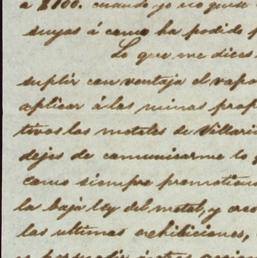 a $100. cuando yo no quise
suyas á como ha podido
Lo que me dices
suplir con ventaja el vapo
aplicar á las minas prop
tivos los motores de Villari
dejes de comunicarme lo
como siempre
la baja ley del metal, y creo
las ultimas exhibiciones,